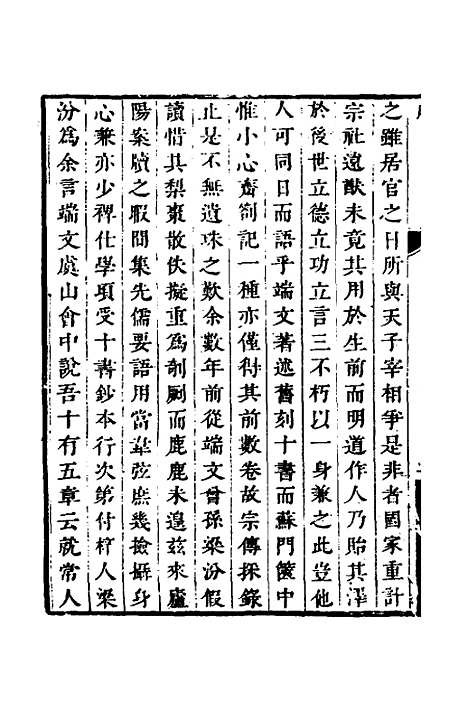 之雖居官之日所與天子宰相爭是非者國家重計
宗社遠猷未竟其用於生前而明道作人乃貽其澤
於後世立德立功立言三不朽以一身兼之此豈他
人可同日而語乎端文著述舊刻十書而蘇門篋中
惟小心齋劄記一種亦僅得其前數卷故宗傳採錄
止是不無遺珠之歎余數年前從端文曾孫梁汾假
讀惜其梨棗散佚擬重爲剞劂而鹿鹿未遑茲來廬
陽案牘之暇間集先儒要語用當韋弦庶幾撿攝身
心兼亦少裨仕學項受十書鈔本行次第付梓人梁
汾爲余言端文虞山會中說吾十有五章云就常人